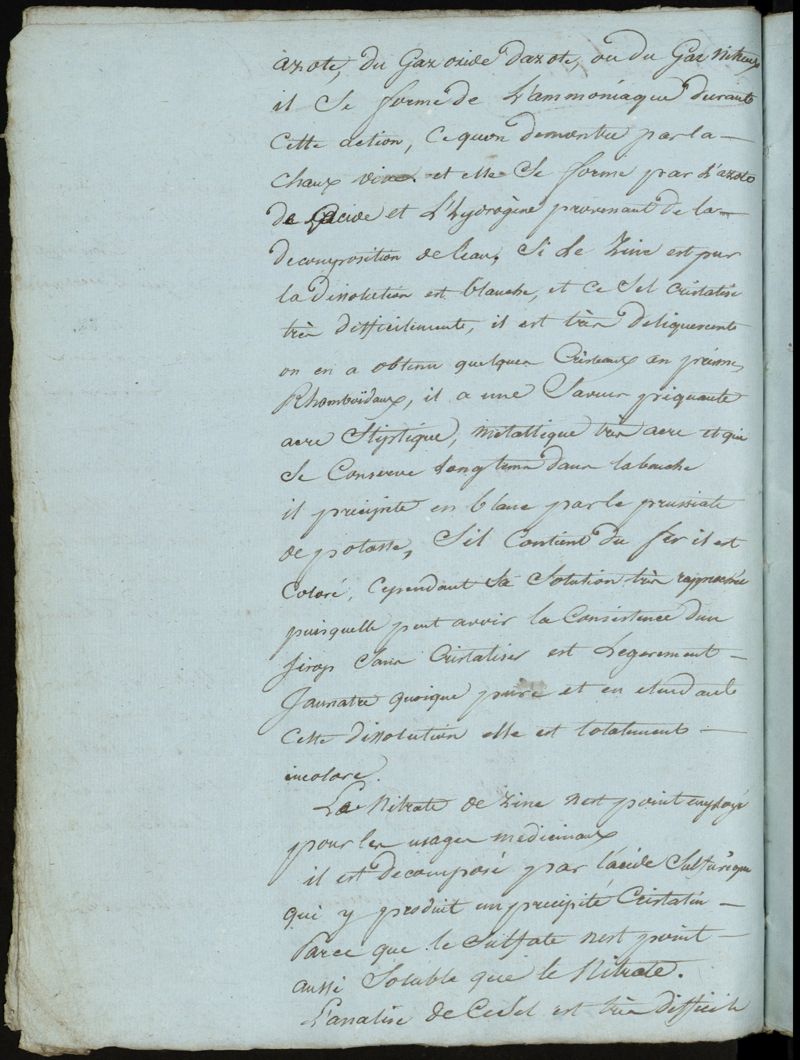 azote, du Gaz oxide d'azote, ou du Gaz nitreux
il se forme de L'ammoniaque durant
cette action, ce quon demontre par la —
chaux vive. et elle se forme par L'azote
de Lacide et L'hydrogène provenant de la —
decomposition de leau, Si le Zinc est pur
la dissolution est blanche, et ce Sel cristalise
très difficilement, il est très deliquescent
on en a obtenu quelques Cristeaux en prismes
Rhomboïdaux, il a une Saveur piquante
acre Stiptique, metallique très acre et qui
se conserve longtems dans la bouche
il precipite en blanc par le prussiate
de potasse, Sil Contient du fer il est
Coloré, Cependant sa Solution très rapprochée
puisquelle peut avoir la Consistence dun
sirop Sans Cristaliser est Legerement —
Jaunatre quoique pure et en etendant
Cette dissolution elle est totalement —
incolore.
Le Nitrate de Zinc nest point employé
pour les usages medicinaux
il est decomposé par l'acide Sulfurique
qui y produit un precipité Cristalin —
Parce que le Sulfate nest point —
aussi Soluble que le Nitrate.
L'analise de Ce Sel est très difficile